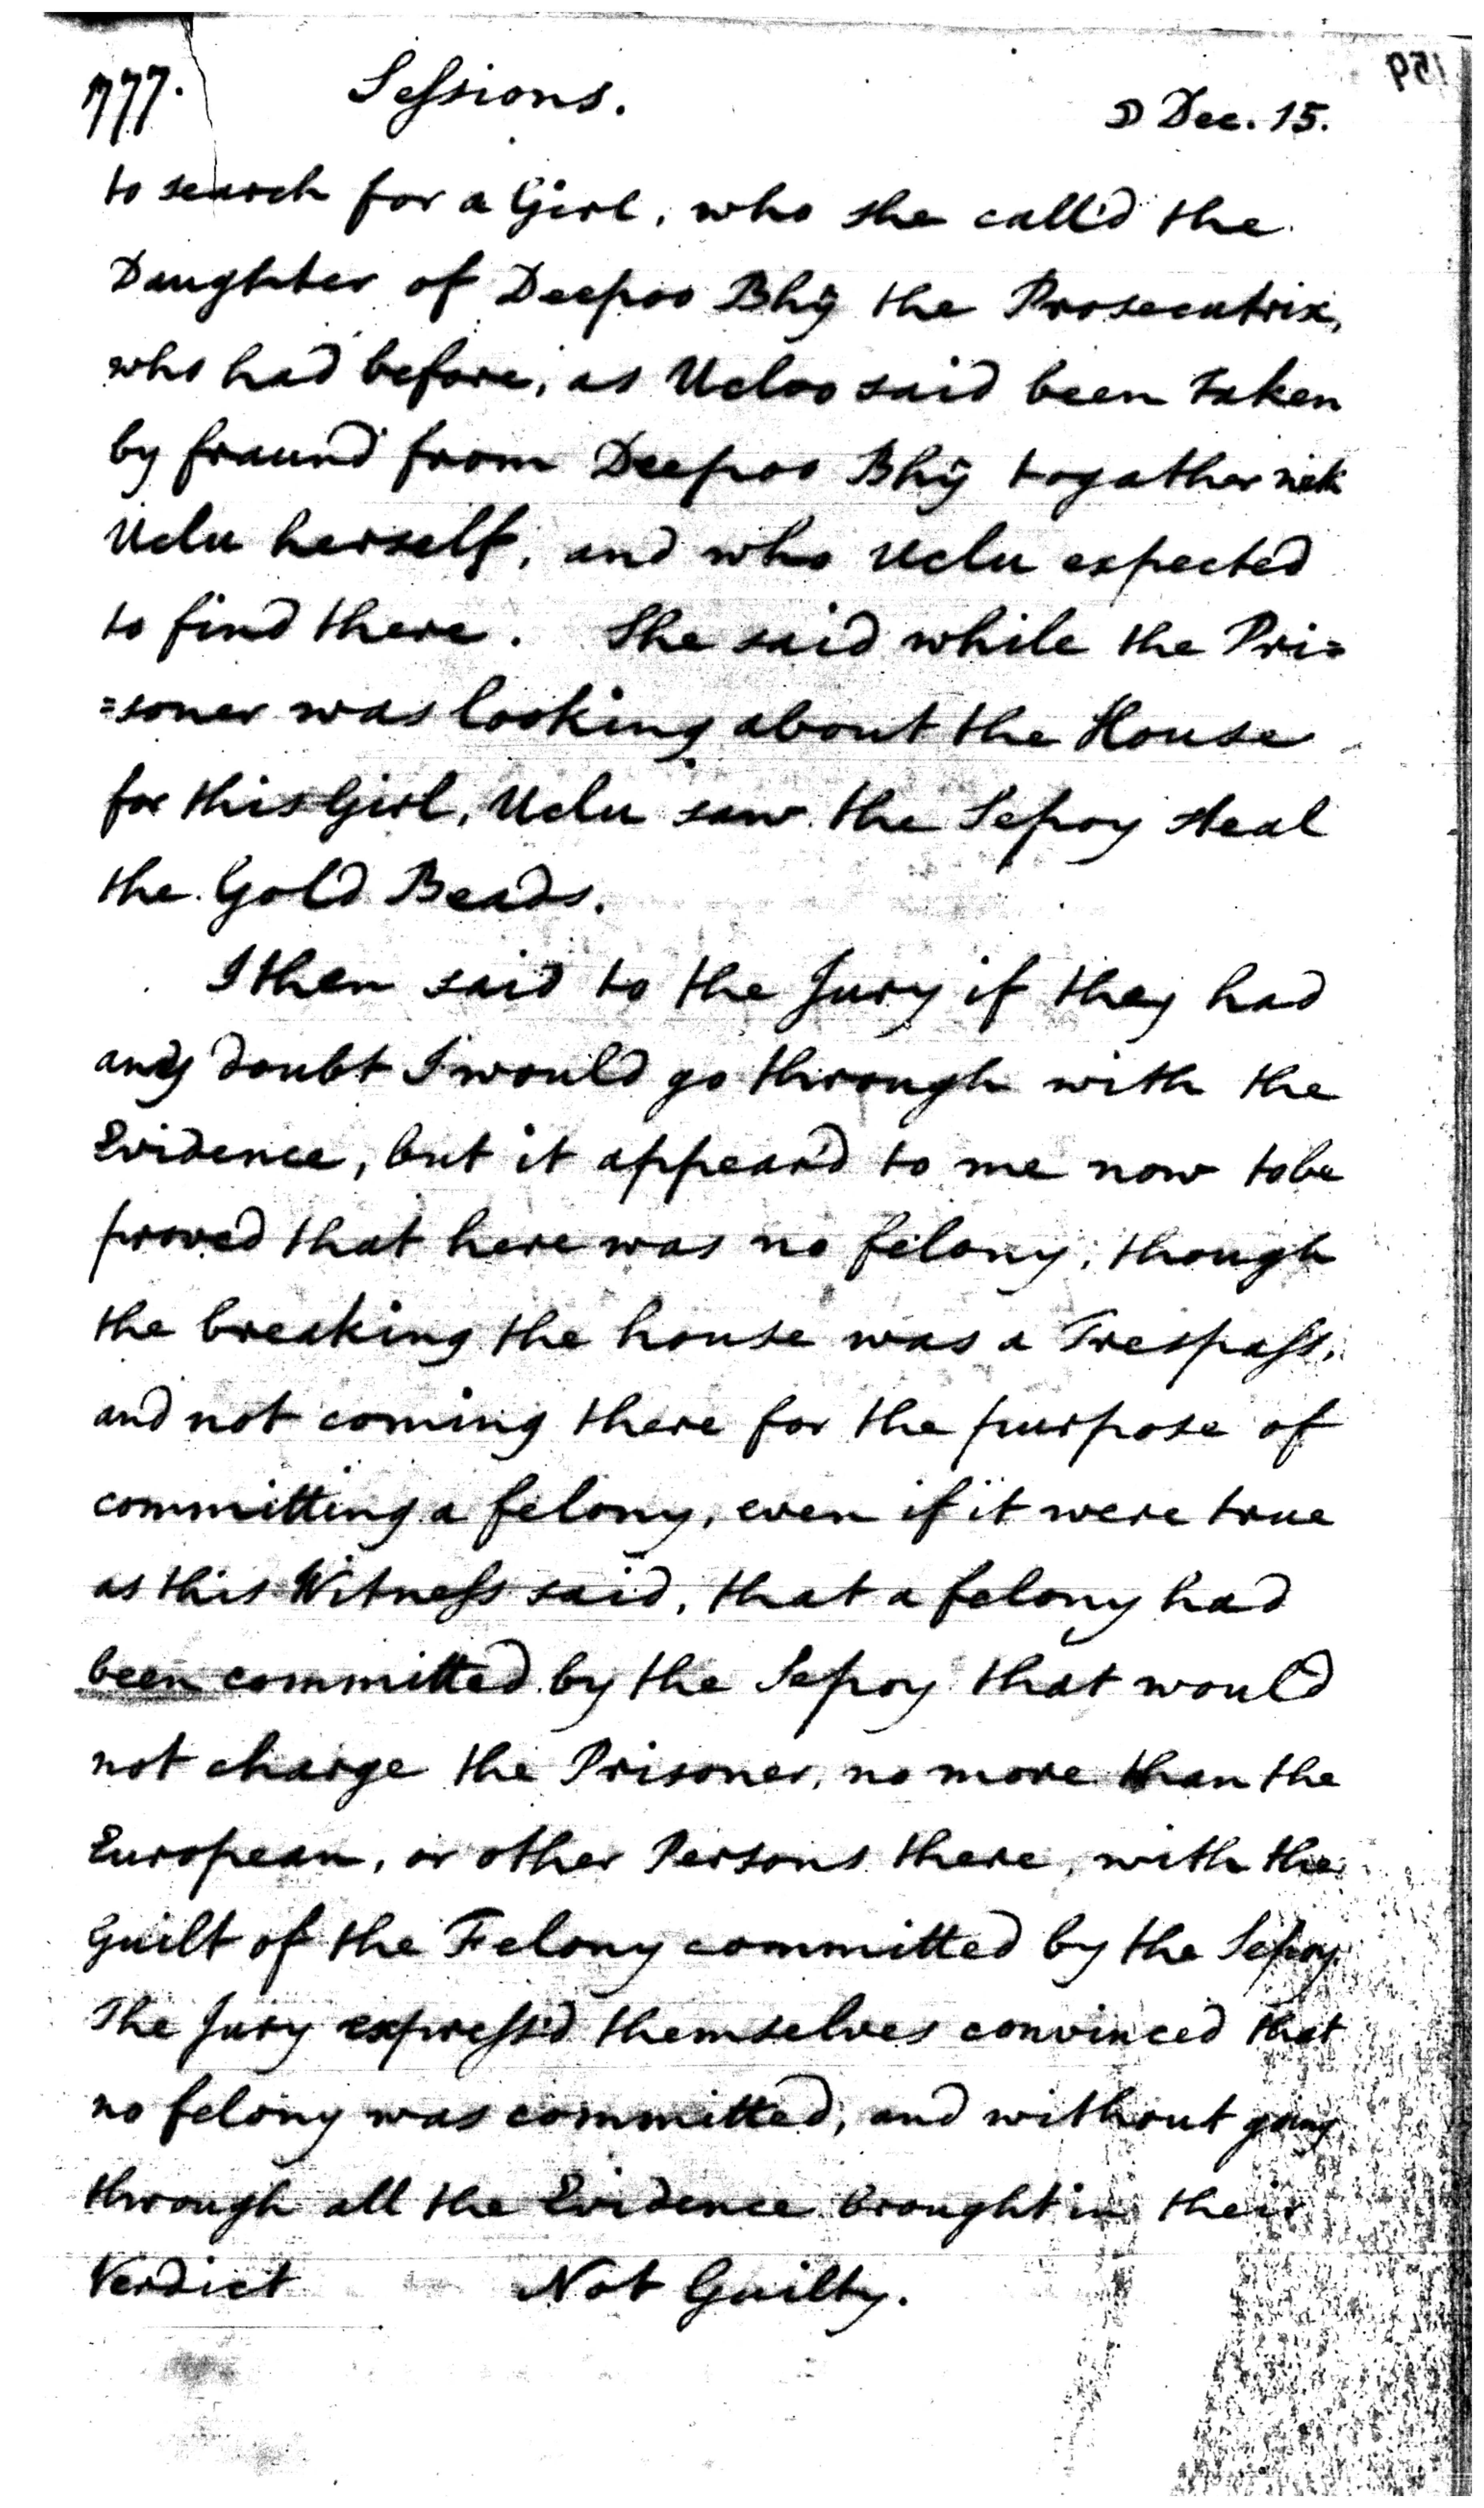 777. Sessions. ☽ Dec. 15.
to search for a Girl, who she call'd the
Daughter of Deepoo Bhÿ the Prosecutrix,
who had before, as Ucloo said been taken
by fraund from Deepoo Bhÿ togather with
Uclu herself, and who Uclu expected
to find there. She said while the Pri=
=soner was looking about the House
for this Girl, Uclu saw the Sepoy steal
the Gold Beads.
I then said to the Jury if they had
any doubt I would go through with the
Evidence, but it appear'd to me now to be
proved that here was no felony; though
the breaking the house was a Trespass,
and not coming there for the purpose of
committing a felony, even if it were true
as this Witness said, that a felony had
been committed by the Sepoy that would
not charge the Prisoner, no more than the
European, or other Persons there, with the
Guilt of the Felony committed by the Sepoy.
The Jury express'd themselves convinced that
no felony was committed, and without going
through all the Evidence brought in their
Verdict Not Guilty.